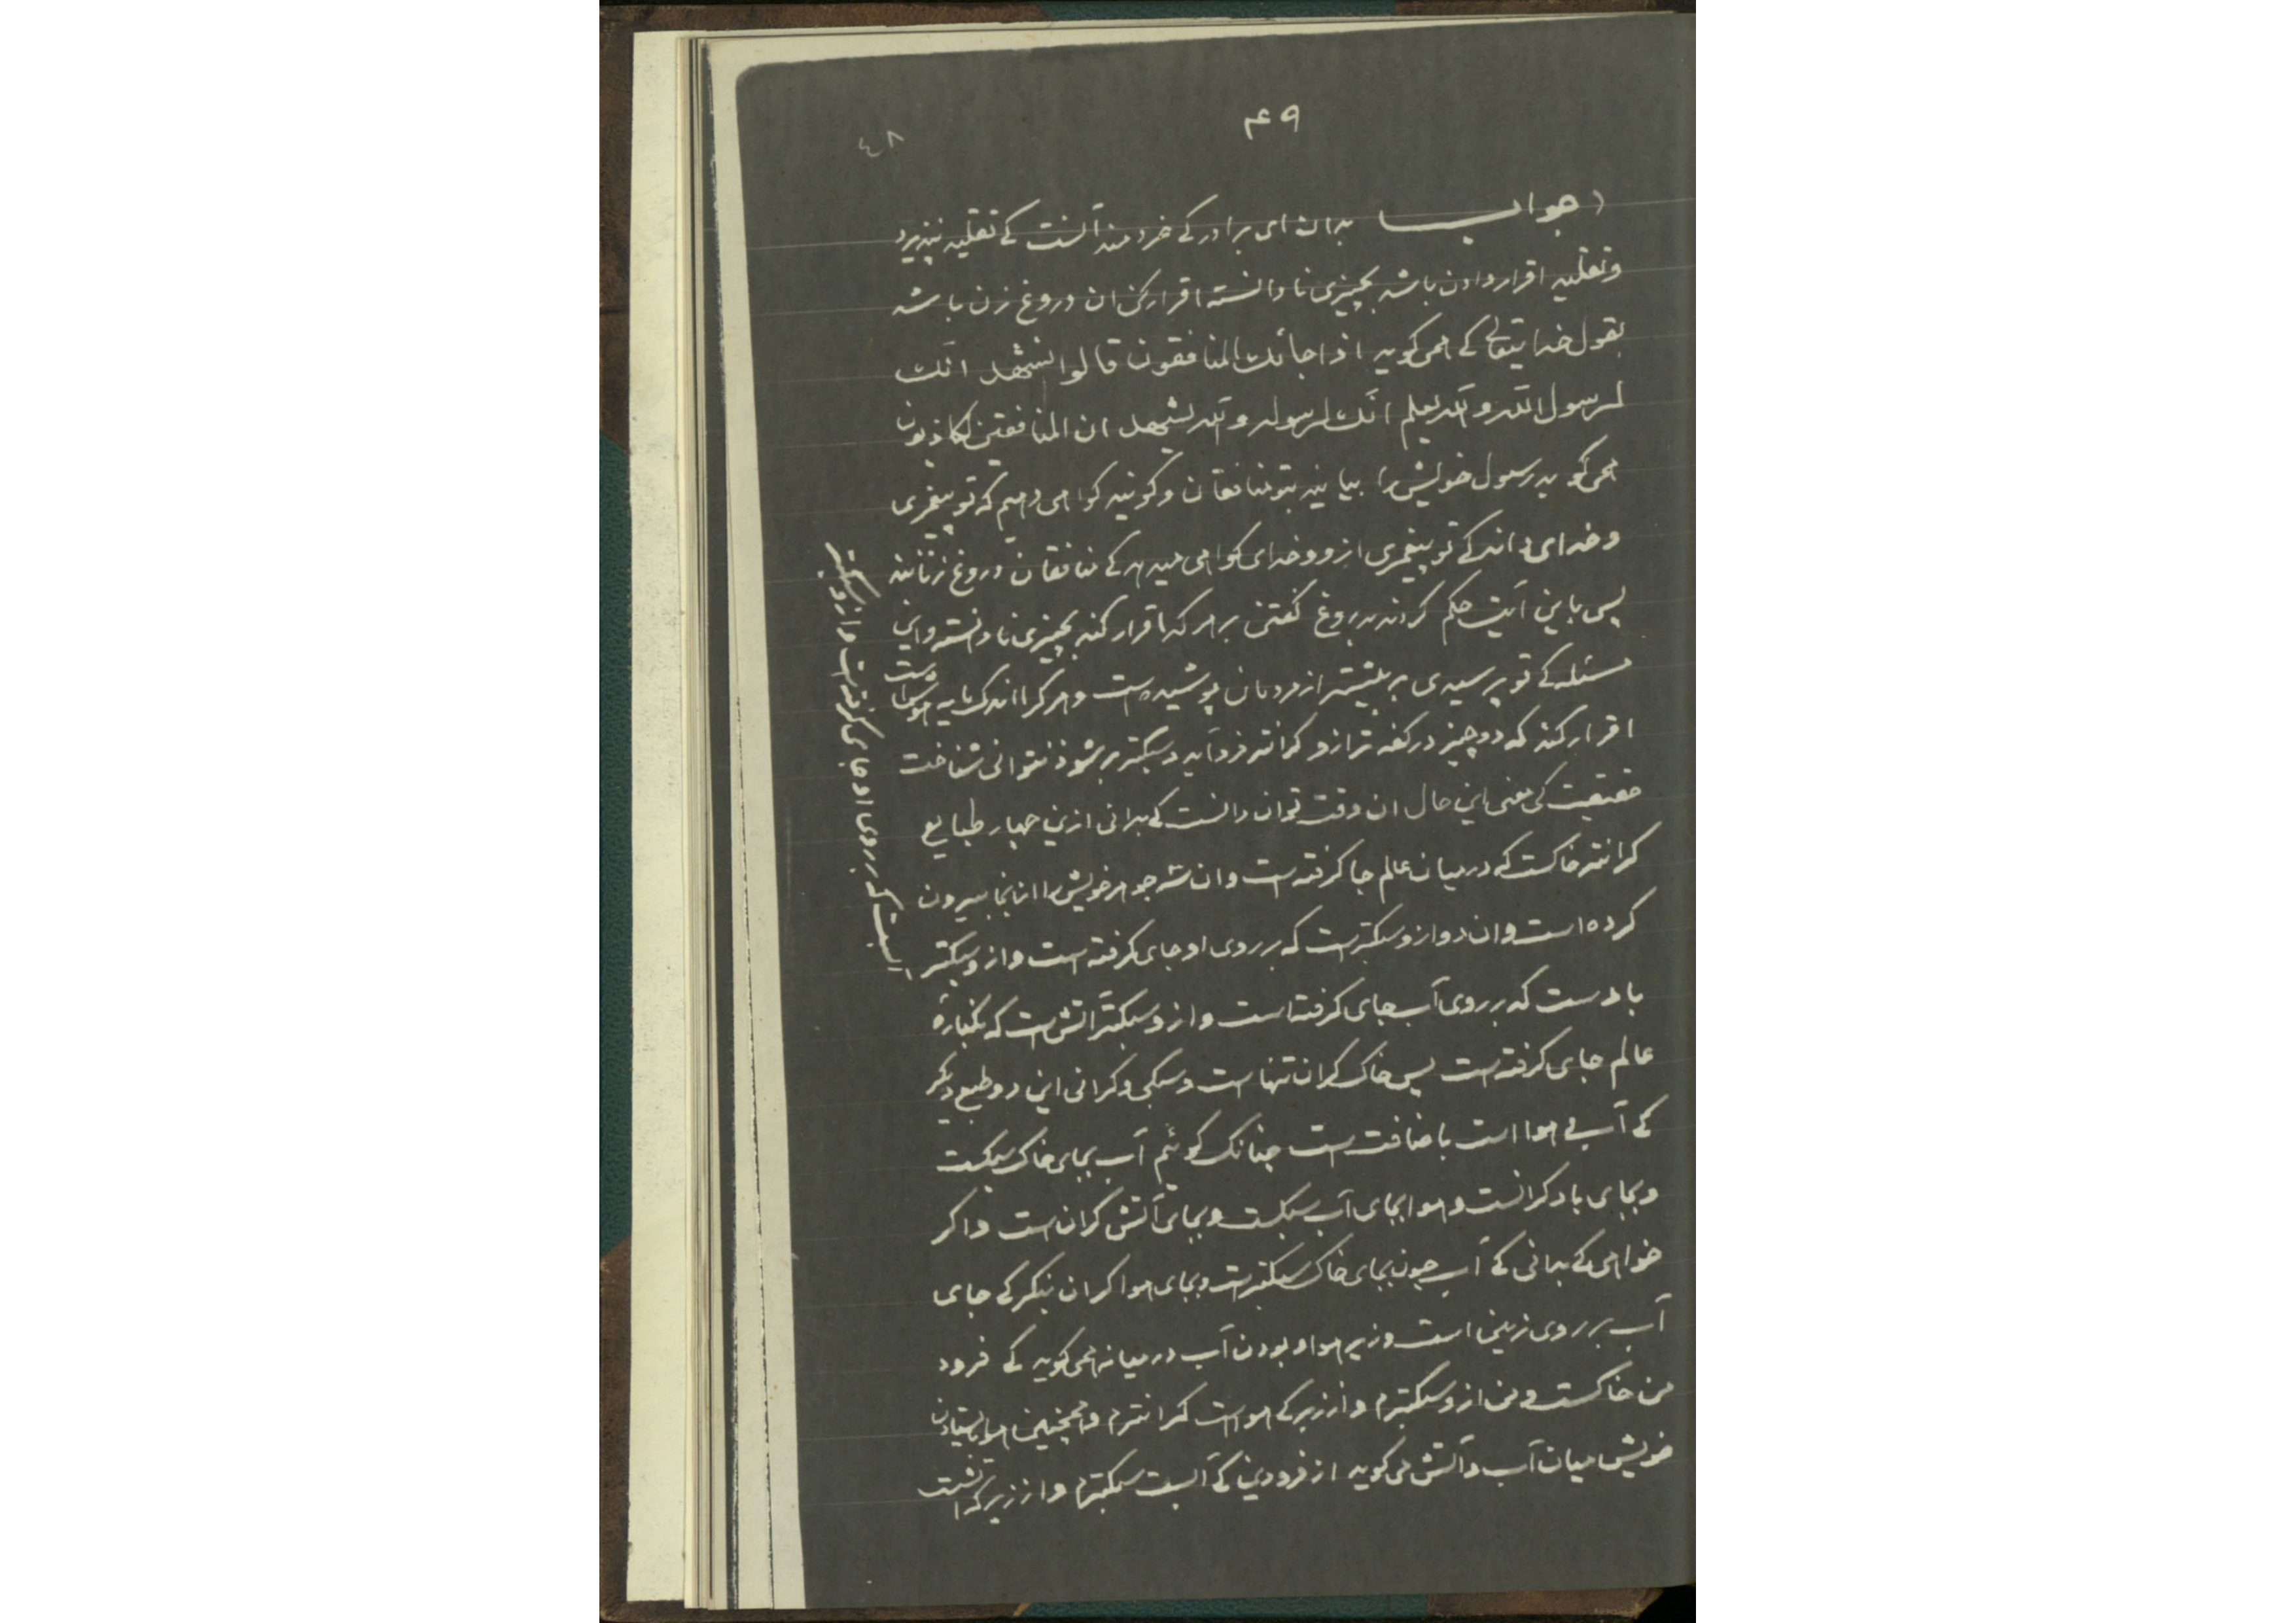 ۴۹
٤٨
جواب بدان ای برادر کے خردمند آنست کے تقلید نپذیرد
وتقلید اقرار دادن باشد بچیزی نا دانسته اقرار کن ان دروغ زن باشد
بقول خدایتعالے کے همی کوید اذا جائك المنافقون قالوا نشهد انّك
لرسول الله والله یعلم انّك لرسوله والله یشهد ان المنافقین لکاذبون
همی کوید رسول خویش را بیایند بتو منافقان وکویند کواهی دهیم که تو پیغمبری
وخدای داند کے تو پیغمبری ازو وخدای کواهی میدهد کے منافقان دروغ زنانند
پس باین آیت حکم کردند بدروغ کفتن بر هر که اقرار کند بچیزی نا دانسته واین
مسئله کے تو پرسیدی بر بیشتر از مردمان پوشیده است وهر کرا اندک مایه هوش است
اقرار کند که دو چیز در کفه ترازو کرانتر فرد آید وسبکتر بر شود نتوانی شناخت
حقیقت کی معنی این حال ان وقت توان دانست کے بدانی ازین چهار طبایع
کرانتر خاکست که در میان عالم جا کرفته است وان سه جوهر خویش را ازانجا بیرون
کرده است وان دو ازو سبکترست که بر روی او جای کرفته است وازو سبکتر
بادست که بر روی آب جای کرفته است وازو سبکتر آتش است که بکنارهٔ
عالم جای کرفته است پس خاک کران تنها است وسبکی وکرانی این دو طبع دیکر
کے آب و هوا است باضافت است چنانک کوئیم آب بجای خاک سبکست
وبجای باد کرانست وهوا بجای آب سبکست وبجای آتش کران است واکر
خواهی کے بدانی کے آب چون بجای خاک سبکترست وبجای هوا کران بنکر کے جای
آب بر روی زمین است وزیر هوا وبودن آب در میانه همی کوید کے فرود
من خاکست ومن ازو سبکترم واززبر کے هواست کرانترم وهمچنین هوا بایستادن
خویش میان آب وآتش می کوید از فرودین کے آبست سبکترم واززبر که آتشست
آبست که بر روی او جای کرفته است وازو سبکتر